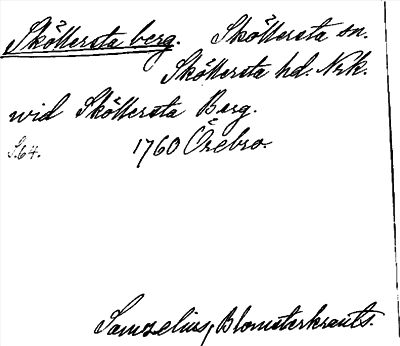 Sköllersta berg. Sköllersta sn.
Sköllersta hd. Nrk.
wid Sköllersta Berg.
S. 64. 1760 Örebro.
Samzelius, Blomsterkrants.